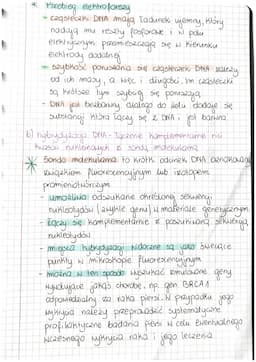 * Przebieg elektroforezy
- cząsteczki DNA mają ładunek ujemny, który
nadają mu reszty fosforowe i w polu
elektrycznym przemieszczają się w kierunku
elektrody dodatniej
- szybkość poruszania się cząsteczek DNA zależy
od ich masy, a więc i długości, im cząsteczki
są krótsze tym szybciej się poruszają
- DNA jest bezbarwny dlatego do żelu dodaje się
substancji która łączy się z DNA i jest barwna
b) hybrydyzacja DNA - łączenie komplementarne nici
kwasów nukleinowych z sondą molekularną
* Sonda molekularna to krótki odcinek DNA oznakowany
związkiem fluorescencyjnym lub izotopem
promieniotwórczym
- umożliwia odszukanie określonej sekwencji
nukleotydów (zwykle genu) w materiale genetycznym
- łączy się komplementarnie z poszukiwaną sekwencją
nukleotydów
- miejsca hybrydyzacji widoczne są jako świecące
punkty w mikroskopie fluorescencyjnym
- można w ten sposób wyszukać zmutowane geny
wywołujące jakąś chorobę, np. gen BRCA1
odpowiedzialny za raka piersi. W przypadku jego
wykrycia należy przeprowadzić systematyczne
profilaktyczne badania piersi w celu ewentualnego
wczesnego wykrycia raka i jego leczenia